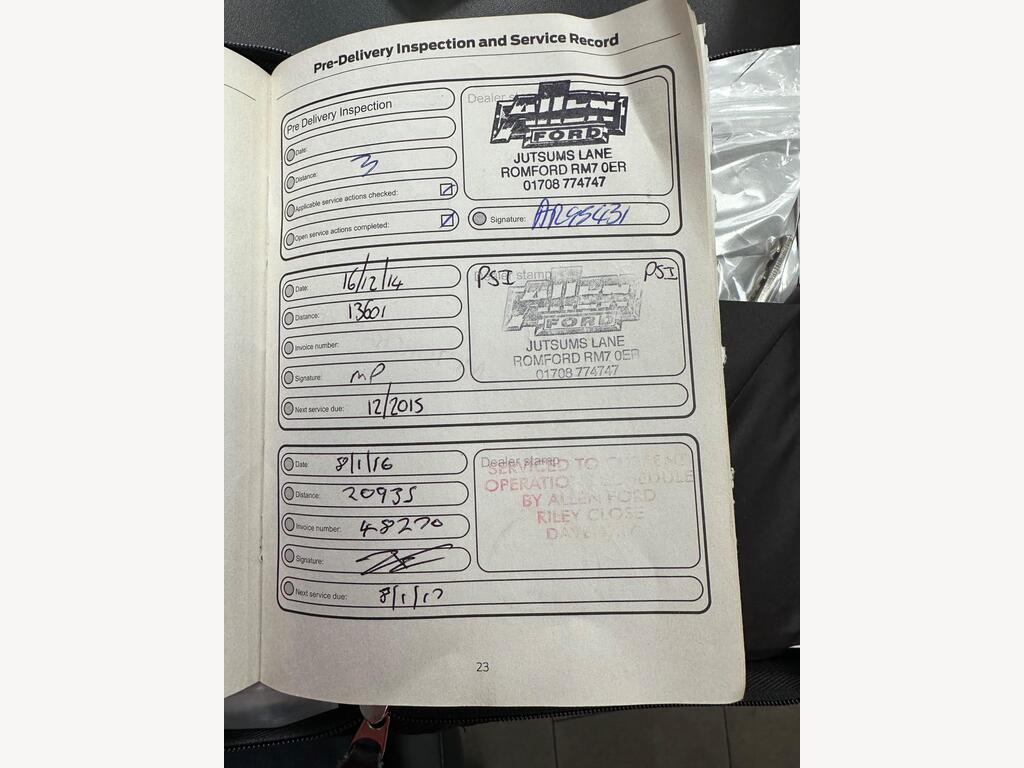 Pre-Delivery Inspection and Service Record
Pre Delivery Inspection
Date:
Distance: 3
Applicable service actions checked:
Open service actions completed:
Dealer
ALLEN
FORD
JUTSUMS LANE
ROMFORD RM7 0ER
01708 774747
Signature:
Date: 16/12/14
Distance: 13601
Invoice number:
Signature: MP
Next service due: 12/2015
Dealer stamp
PSI PSI
ALLEN
FORD
JUTSUMS LANE
ROMFORD RM7 0ER
01708 774747
Date: 8/1/16
Distance: 20935
Invoice number: 48270
Signature:
Next service due: 8/1/17
Dealer stamp
SERVICED TO
BY ALLEN FORD
RILEY CLOSE
23